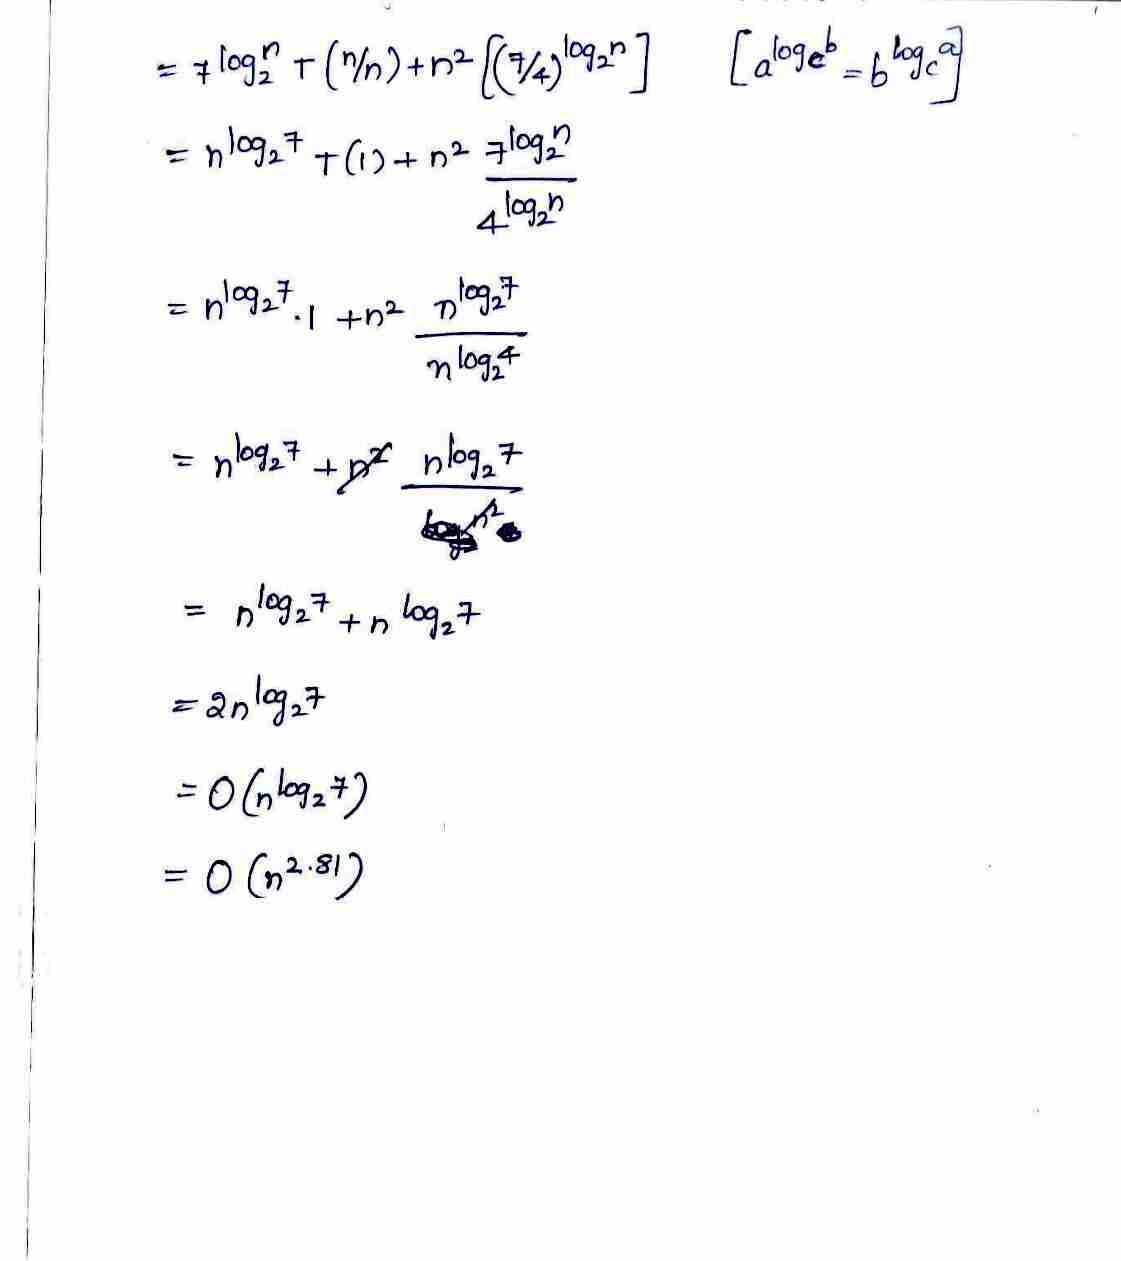 = 7^{log_2 n} T(n/n) + n² [(7/4)^{log_2 n}] [a^{log_c b} = b^{log_c a}]
= n^{log_2 7} T(1) + n² \frac{7^{log_2 n}}{4^{log_2 n}}
= n^{log_2 7} · 1 + n² \frac{n^{log_2 7}}{n^{log_2 4}}
= n^{log_2 7} + n² \frac{n^{log_2 7}}{n²}
= n^{log_2 7} + n^{log_2 7}
= 2n^{log_2 7}
= O(n^{log_2 7})
= O(n^{2.81})